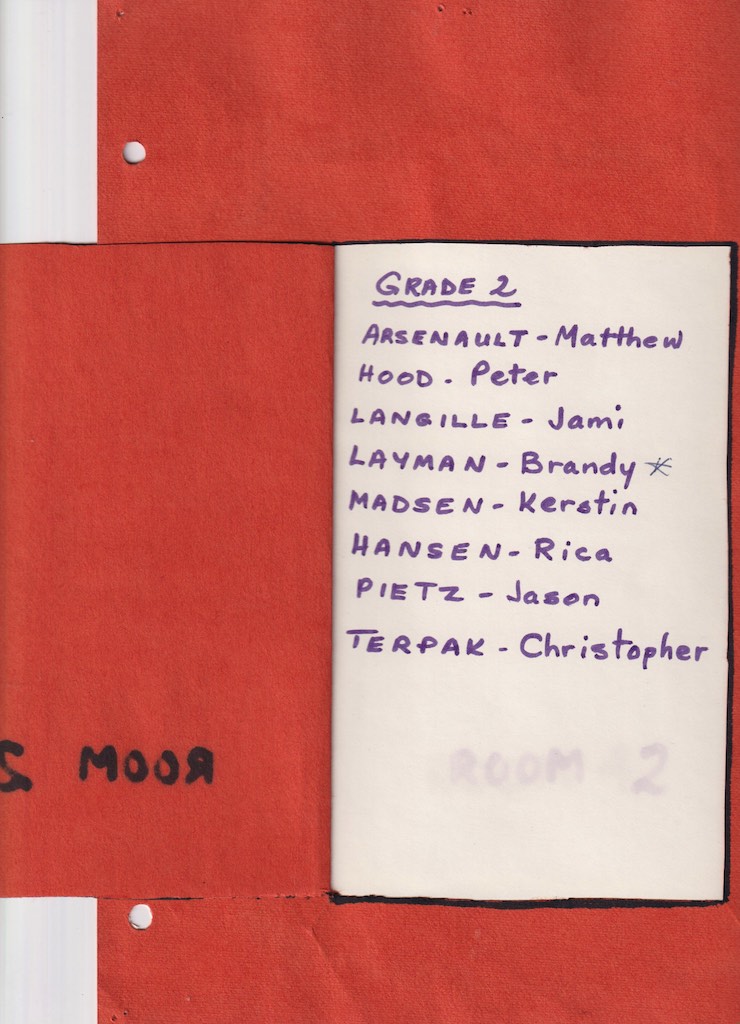 GRADE 2
ARSENAULT - Matthew
HOOD - Peter
LANGILLE - Jami
LAYMAN - Brandy *
MADSEN - Kerstin
HANSEN - Rica
PIETZ - Jason
TERPAK - Christopher
ROOM 2
ROOM 2